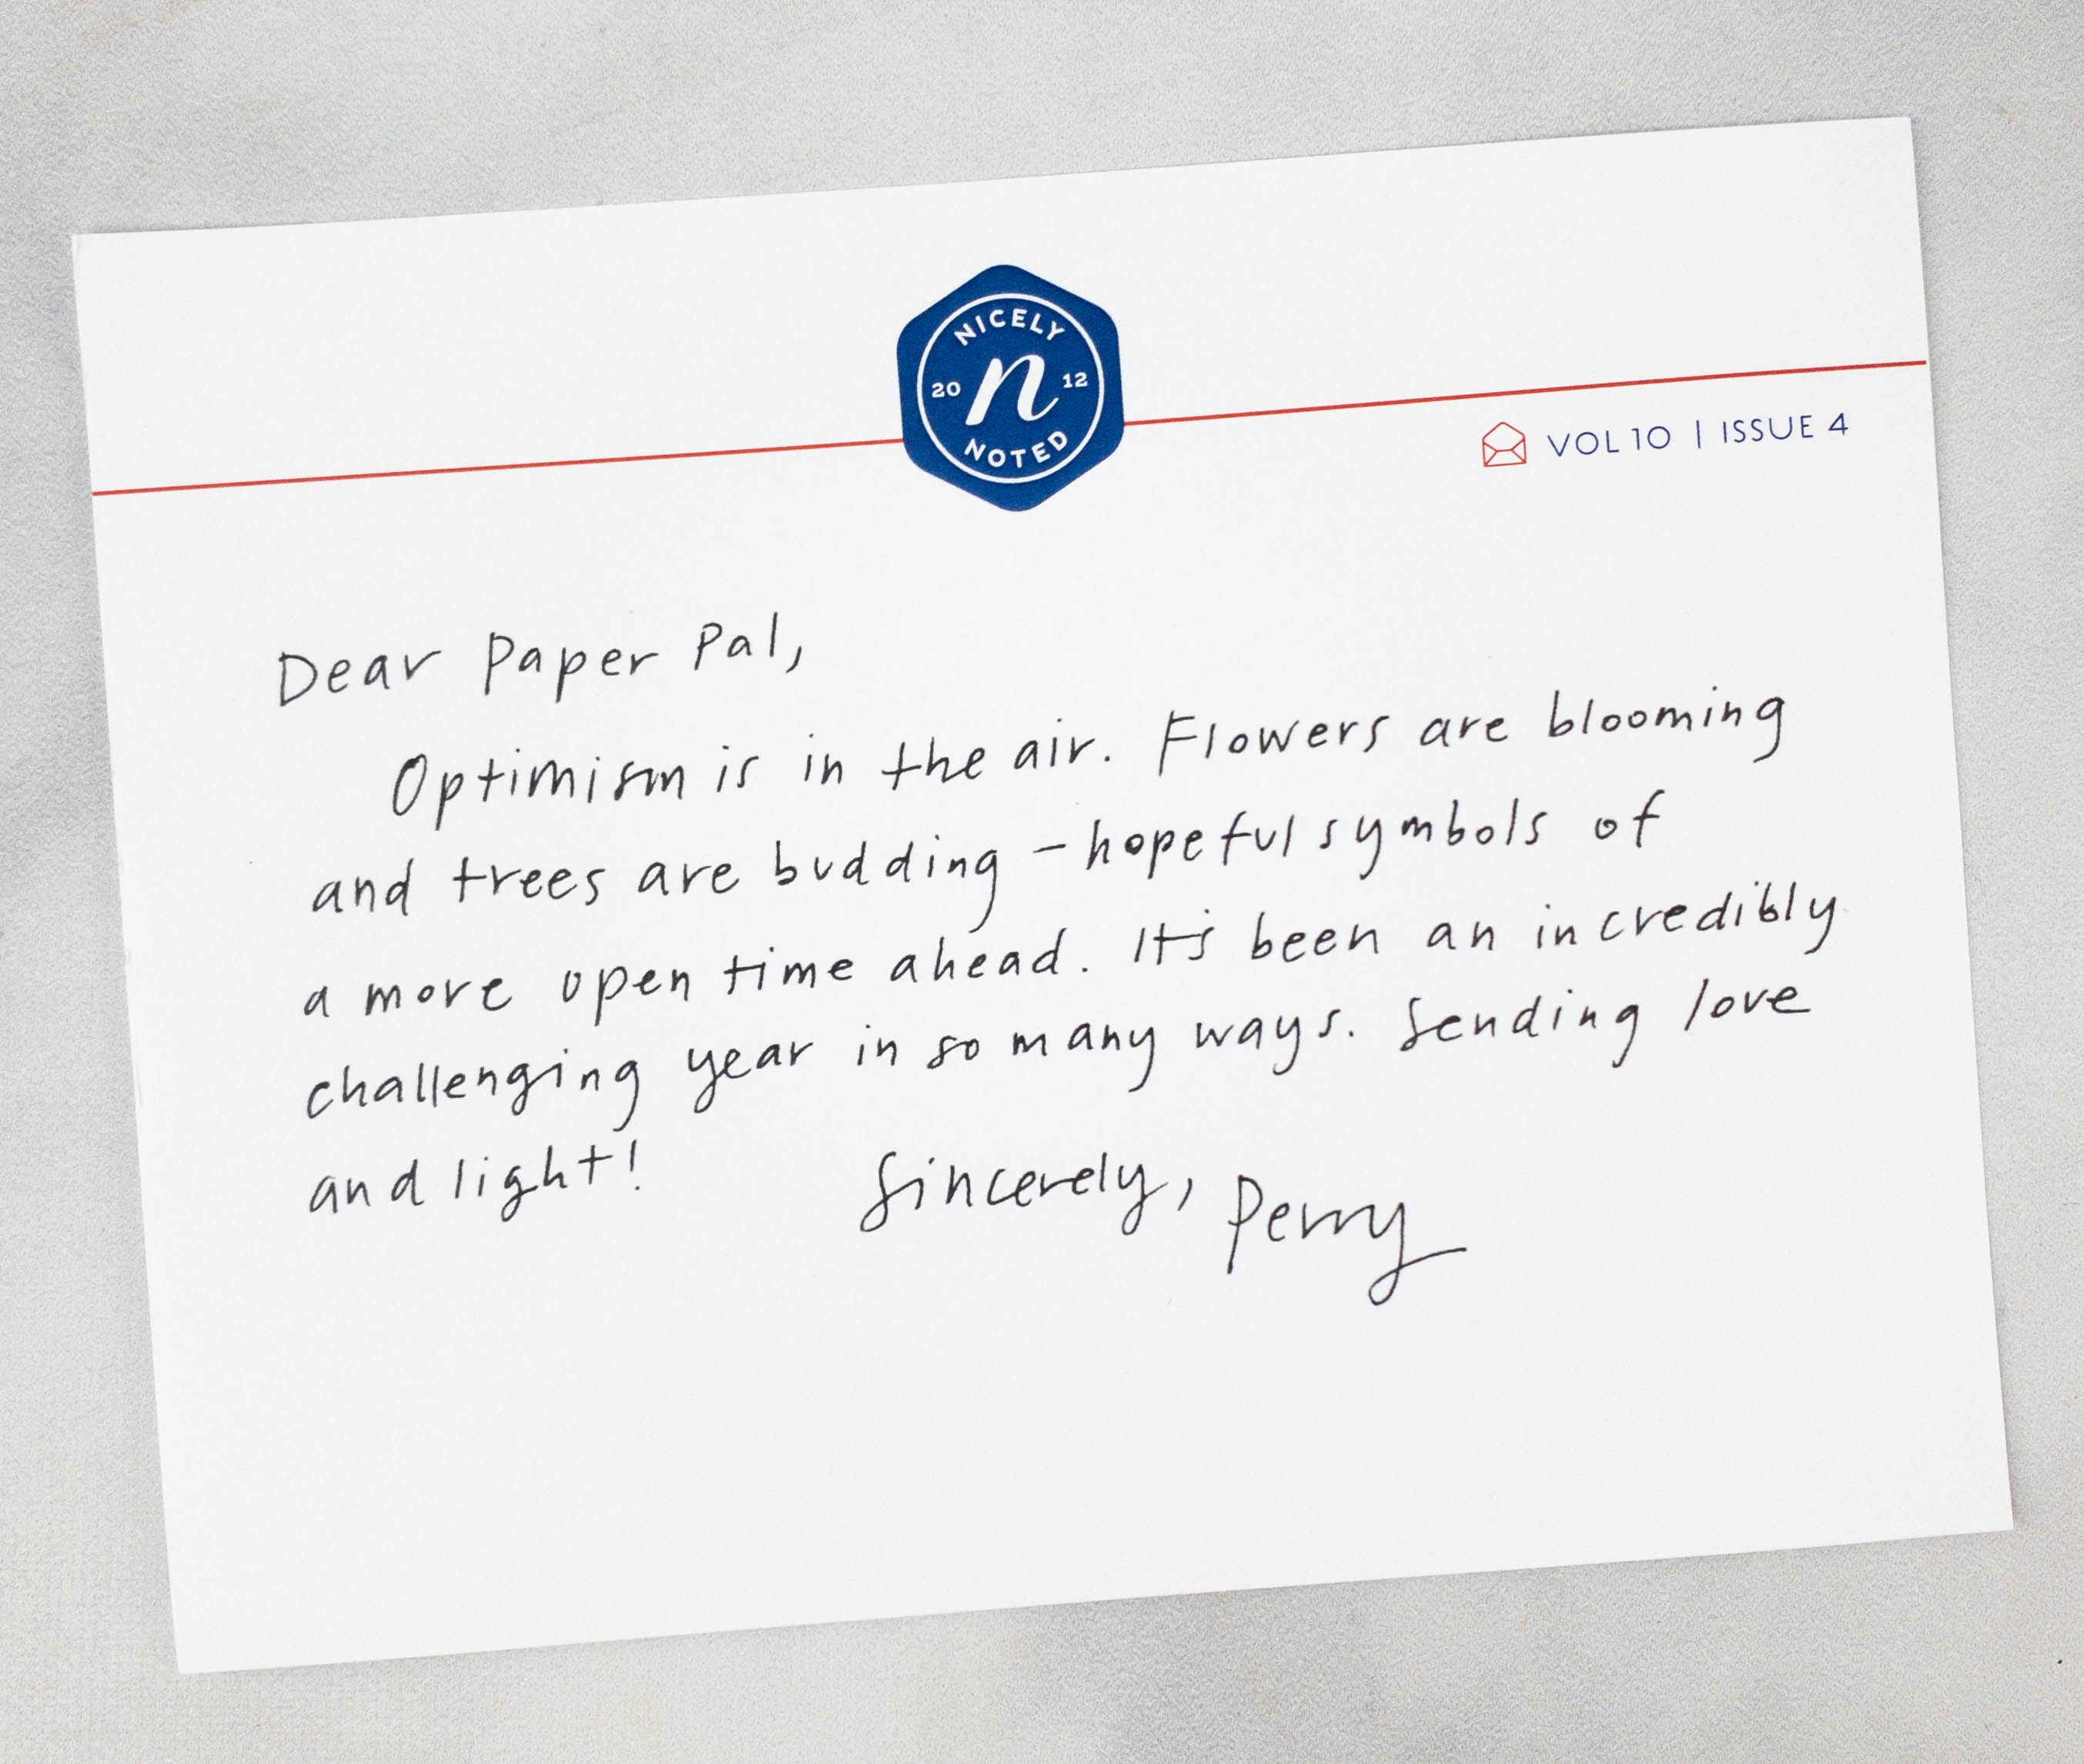 NICELY
20 n 12
NOTED
VOL 10 | ISSUE 4
Dear Paper Pal,
Optimism is in the air. Flowers are blooming
and trees are budding – hopeful symbols of
a more open time ahead. It's been an incredibly
challenging year in so many ways. Sending love
and light!
Sincerely, Perry